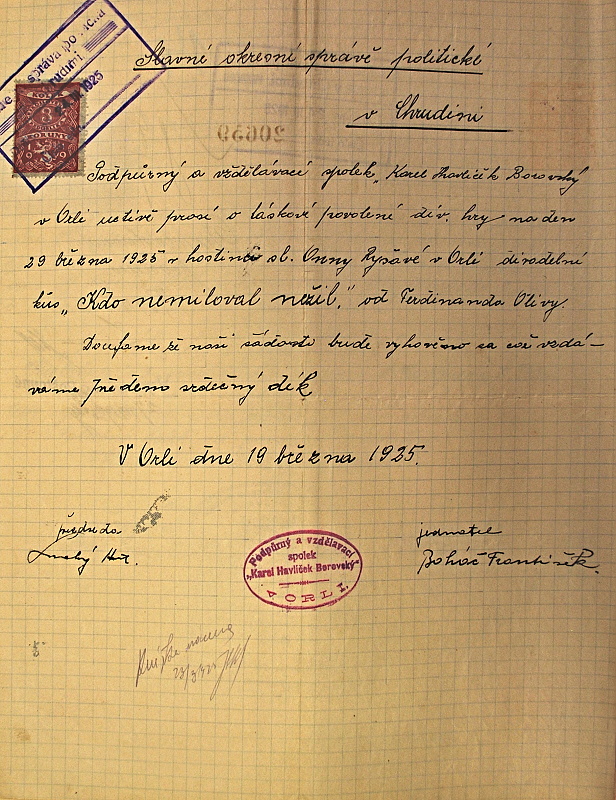 správa po
1925
KOLEK
3
KORUNY
1919
Slavné okresní správě politické
v Chrudimi
20659
Podpůrný a vzdělávací spolek „Karel Havlíček Borovský
v Orli uctivě prosí o láskové povolení div. hry na den
29 března 1925 v hostinci sl. Anny Ryšávé v Orli divadelní
kus „Kdo nemiloval nežil," od Ferdinanda Olivy.
Doufáme že naší žádosti bude vyhověno za což vzdá-
váme předem srdečný dík
V Orli dne 19 března 1925.
předseda
jednatel
Boháč František.
Podpůrný a vzdělávací
spolek
„Karel Havlíček Borovský"
V ORLI